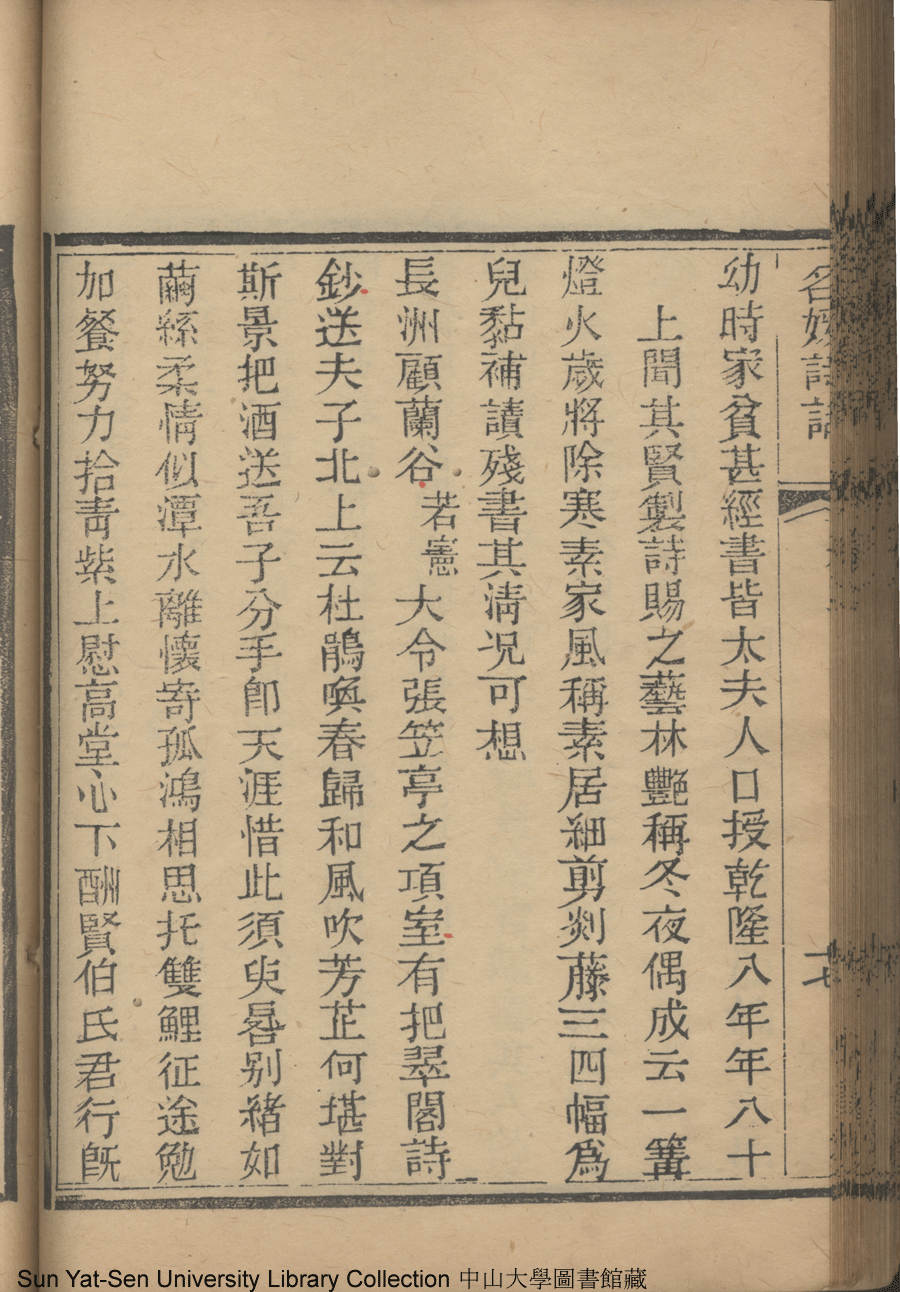 名媛詩話
七
幼時家貧甚經書皆太夫人口授乾隆八年年八十
上聞其賢製詩賜之藝林艷稱冬夜偶成云一篝
燈火歲將除寒素家風稱素居細剪剡藤三四幅爲
兒黏補讀殘書其淸况可想
長洲顧蘭谷若憲大令張笠亭之項室有把翠閣詩
鈔送夫子北上云杜鵑喚春歸和風吹芳芷何堪對
斯景把酒送吾子分手卽天涯惜此須臾晷别緖如
繭絲柔情似潭水離懷寄孤鴻相思托雙鯉征途勉
加餐努力拾靑紫上慰高堂心下酬賢伯氏君行旣
Sun Yat-Sen University Library Collection 中山大學圖書館藏